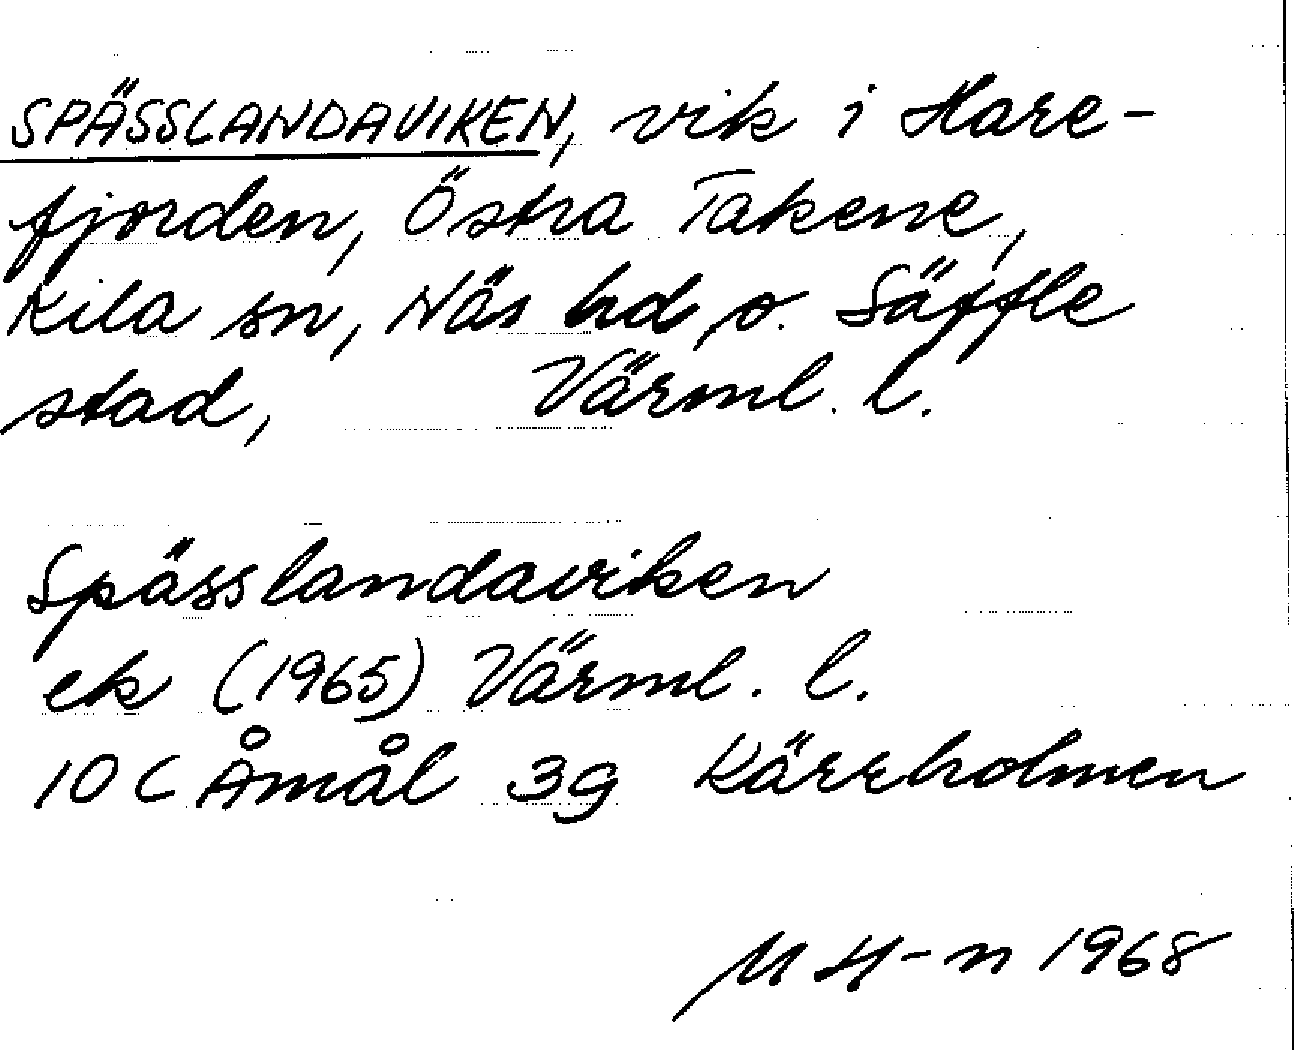 SPÄSSLANDAVIKEN, vik i Hare-
fjorden, Östra Takene,
Kila sn, Näs hd, o. Säffle
stad, Värml. l.
Spässlandaviken
ek (1965) Värml. l.
10 C Åmål 3g Kärrholmen
M H-n 1968